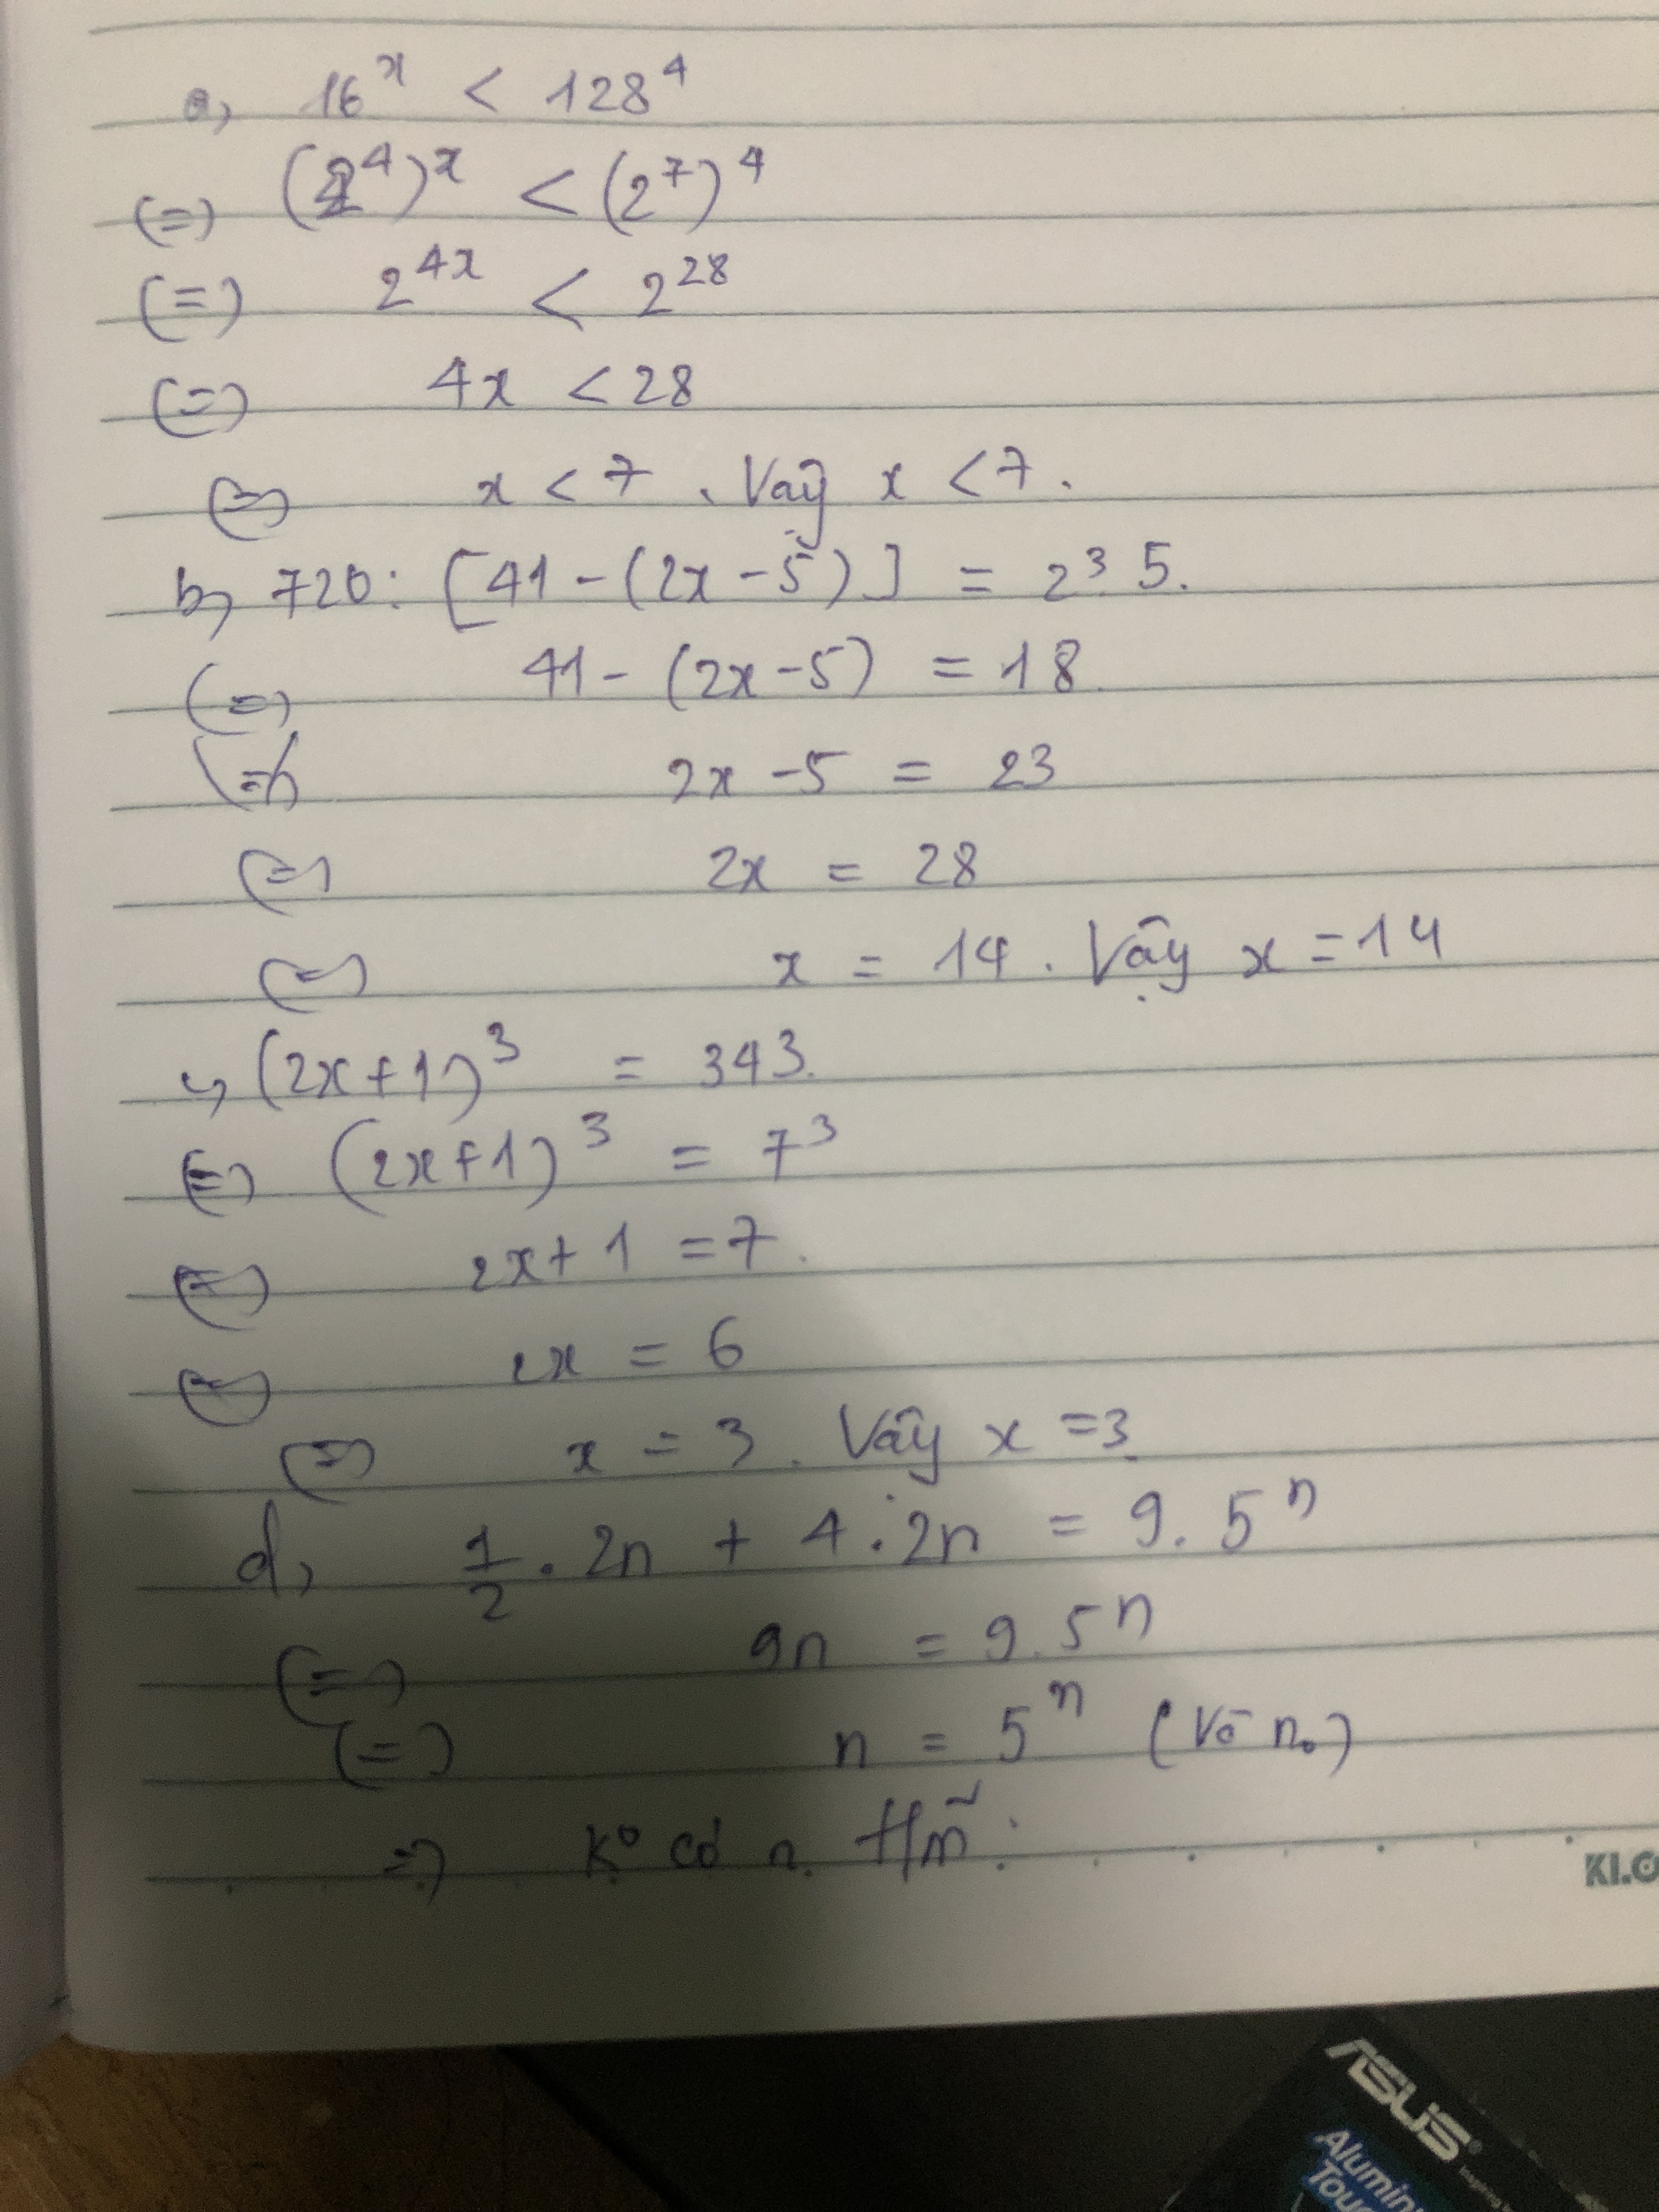 a, 16^x < 128^4
(=) (2^4)^x < (2^7)^4
(=) 2^4x < 2^28
(=) 4x < 28
(=) x < 7. Vậy x < 7.
b, 720 : [41 - (2x - 5)] = 2^3. 5.
(=) 41 - (2x - 5) = 18.
(=) 2x - 5 = 23
(=) 2x = 28
(=) x = 14. Vậy x = 14
c, (2x + 1)^3 = 343.
(=) (2x + 1)^3 = 7^3
(=) 2x + 1 = 7.
(=) 2x = 6
(=) x = 3. Vậy x = 3
d, 1/2 . 2n + 4 . 2n = 9. 5^n
(=) 9n = 9. 5^n
(=) n = 5^n (Vô n0)
=) Ko có n t/mãn.
KI.O
ASUS
Alumin
Touc